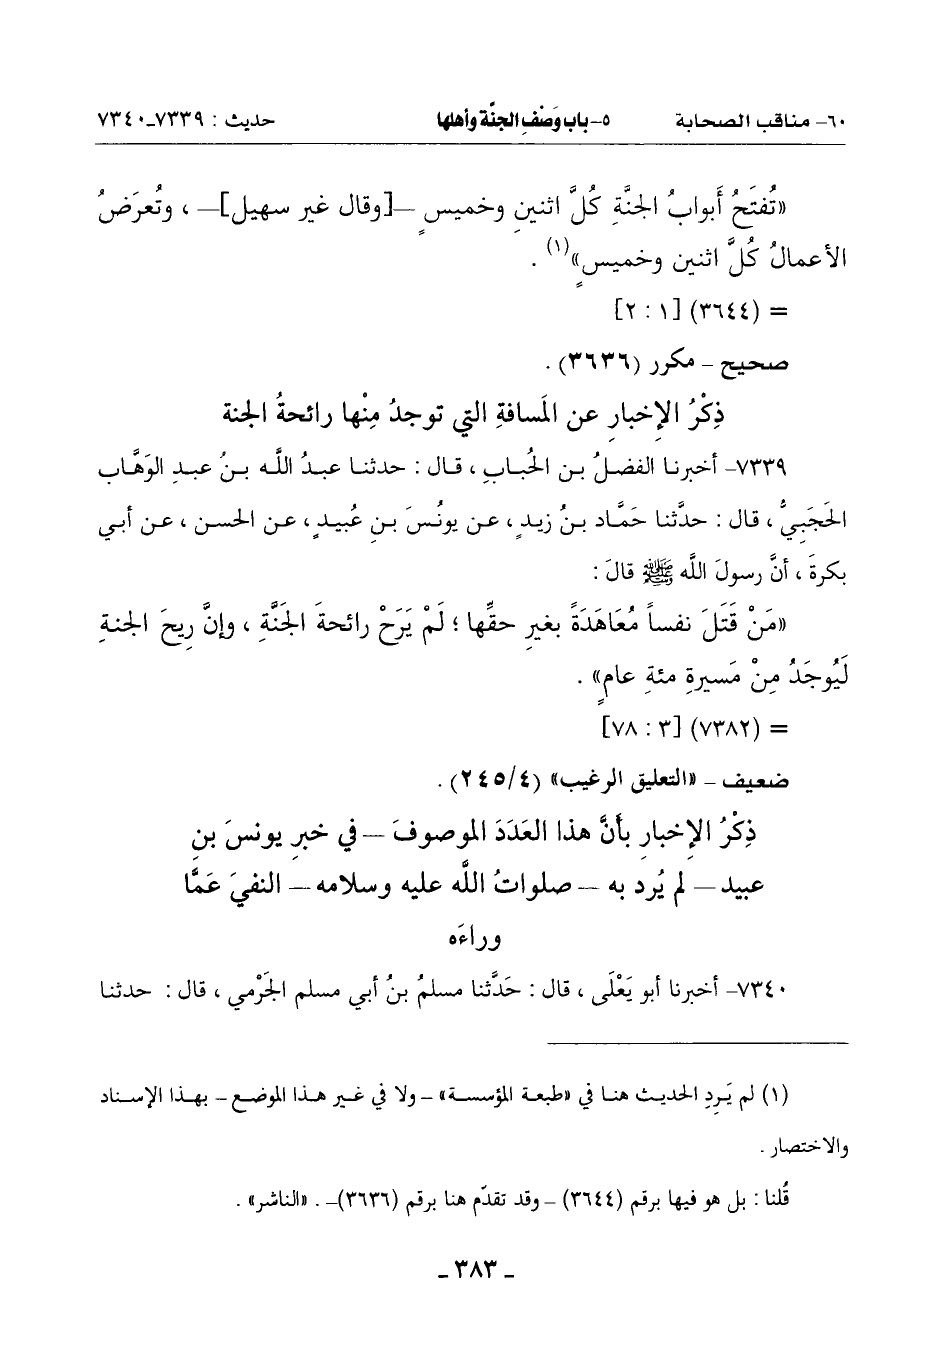 ٦٠- مناقب الصحابة ٥- باب وَصْفِ الجنَّة وأهلها حديث : ٧٣٣٩-٧٣٤٠
«تُفتَحُ أَبوابُ الجنَّةِ كُلَّ اثنينِ وخميسٍ —[وقال غير سهيل]— ، وتُعرَضُ
الأعمالُ كُلَّ اثنين وخميسٍ»(١) .
= (٣٦٤٤) [١ : ٢]
صحيح - مكرر (٣٦٣٦) .
ذِكْرُ الإخبارِ عن المَسافةِ التي توجدُ مِنْها رائحةُ الجنة
٧٣٣٩- أخبرنا الفضلُ بن الحُبابِ ، قال : حدثنا عبدُ اللَّه بنُ عبدِ الوَهَّاب
الحَجَبِيُّ ، قال : حدَّثنا حَمَّاد بنُ زيدٍ ، عن يونُسَ بنِ عُبيدٍ ، عن الحسن ، عن أبي
بكرةَ ، أنَّ رسولَ اللَّه ﷺ قالَ :
«مَنْ قَتَلَ نفساً مُعَاهَدَةً بغيرِ حقِّها ؛ لَمْ يَرَحْ رائحةَ الجَنَّةِ ، وإنَّ رِيحَ الجنةِ
لَيُوجَدُ مِنْ مَسيرةِ مئةِ عامٍ» .
= (٧٣٨٢) [٣ : ٧٨]
ضعيف - «التعليق الرغيب» (٢٤٥/٤) .
ذِكْرُ الإخبارِ بأَنَّ هذا العَدَدَ الموصوفَ — في خبرِ يونسَ بنِ
عبيد — لم يُرد به — صلواتُ اللَّه عليه وسلامه — النفيَ عَمَّا
وراءَه
٧٣٤٠- أخبرنا أبو يَعْلَى ، قال : حَدَّثنا مسلمُ بنُ أبي مسلم الجَرْمي ، قال : حدثنا
(١) لم يَرِدِ الحديث هنا في «طبعة المؤسسة» - ولا في غير هذا الموضع - بهذا الإسناد
والاختصار .
قُلنا : بل هو فيها برقم (٣٦٤٤) - وقد تقدّم هنا برقم (٣٦٣٦)- . «الناشر» .
- ٣٨٣ -